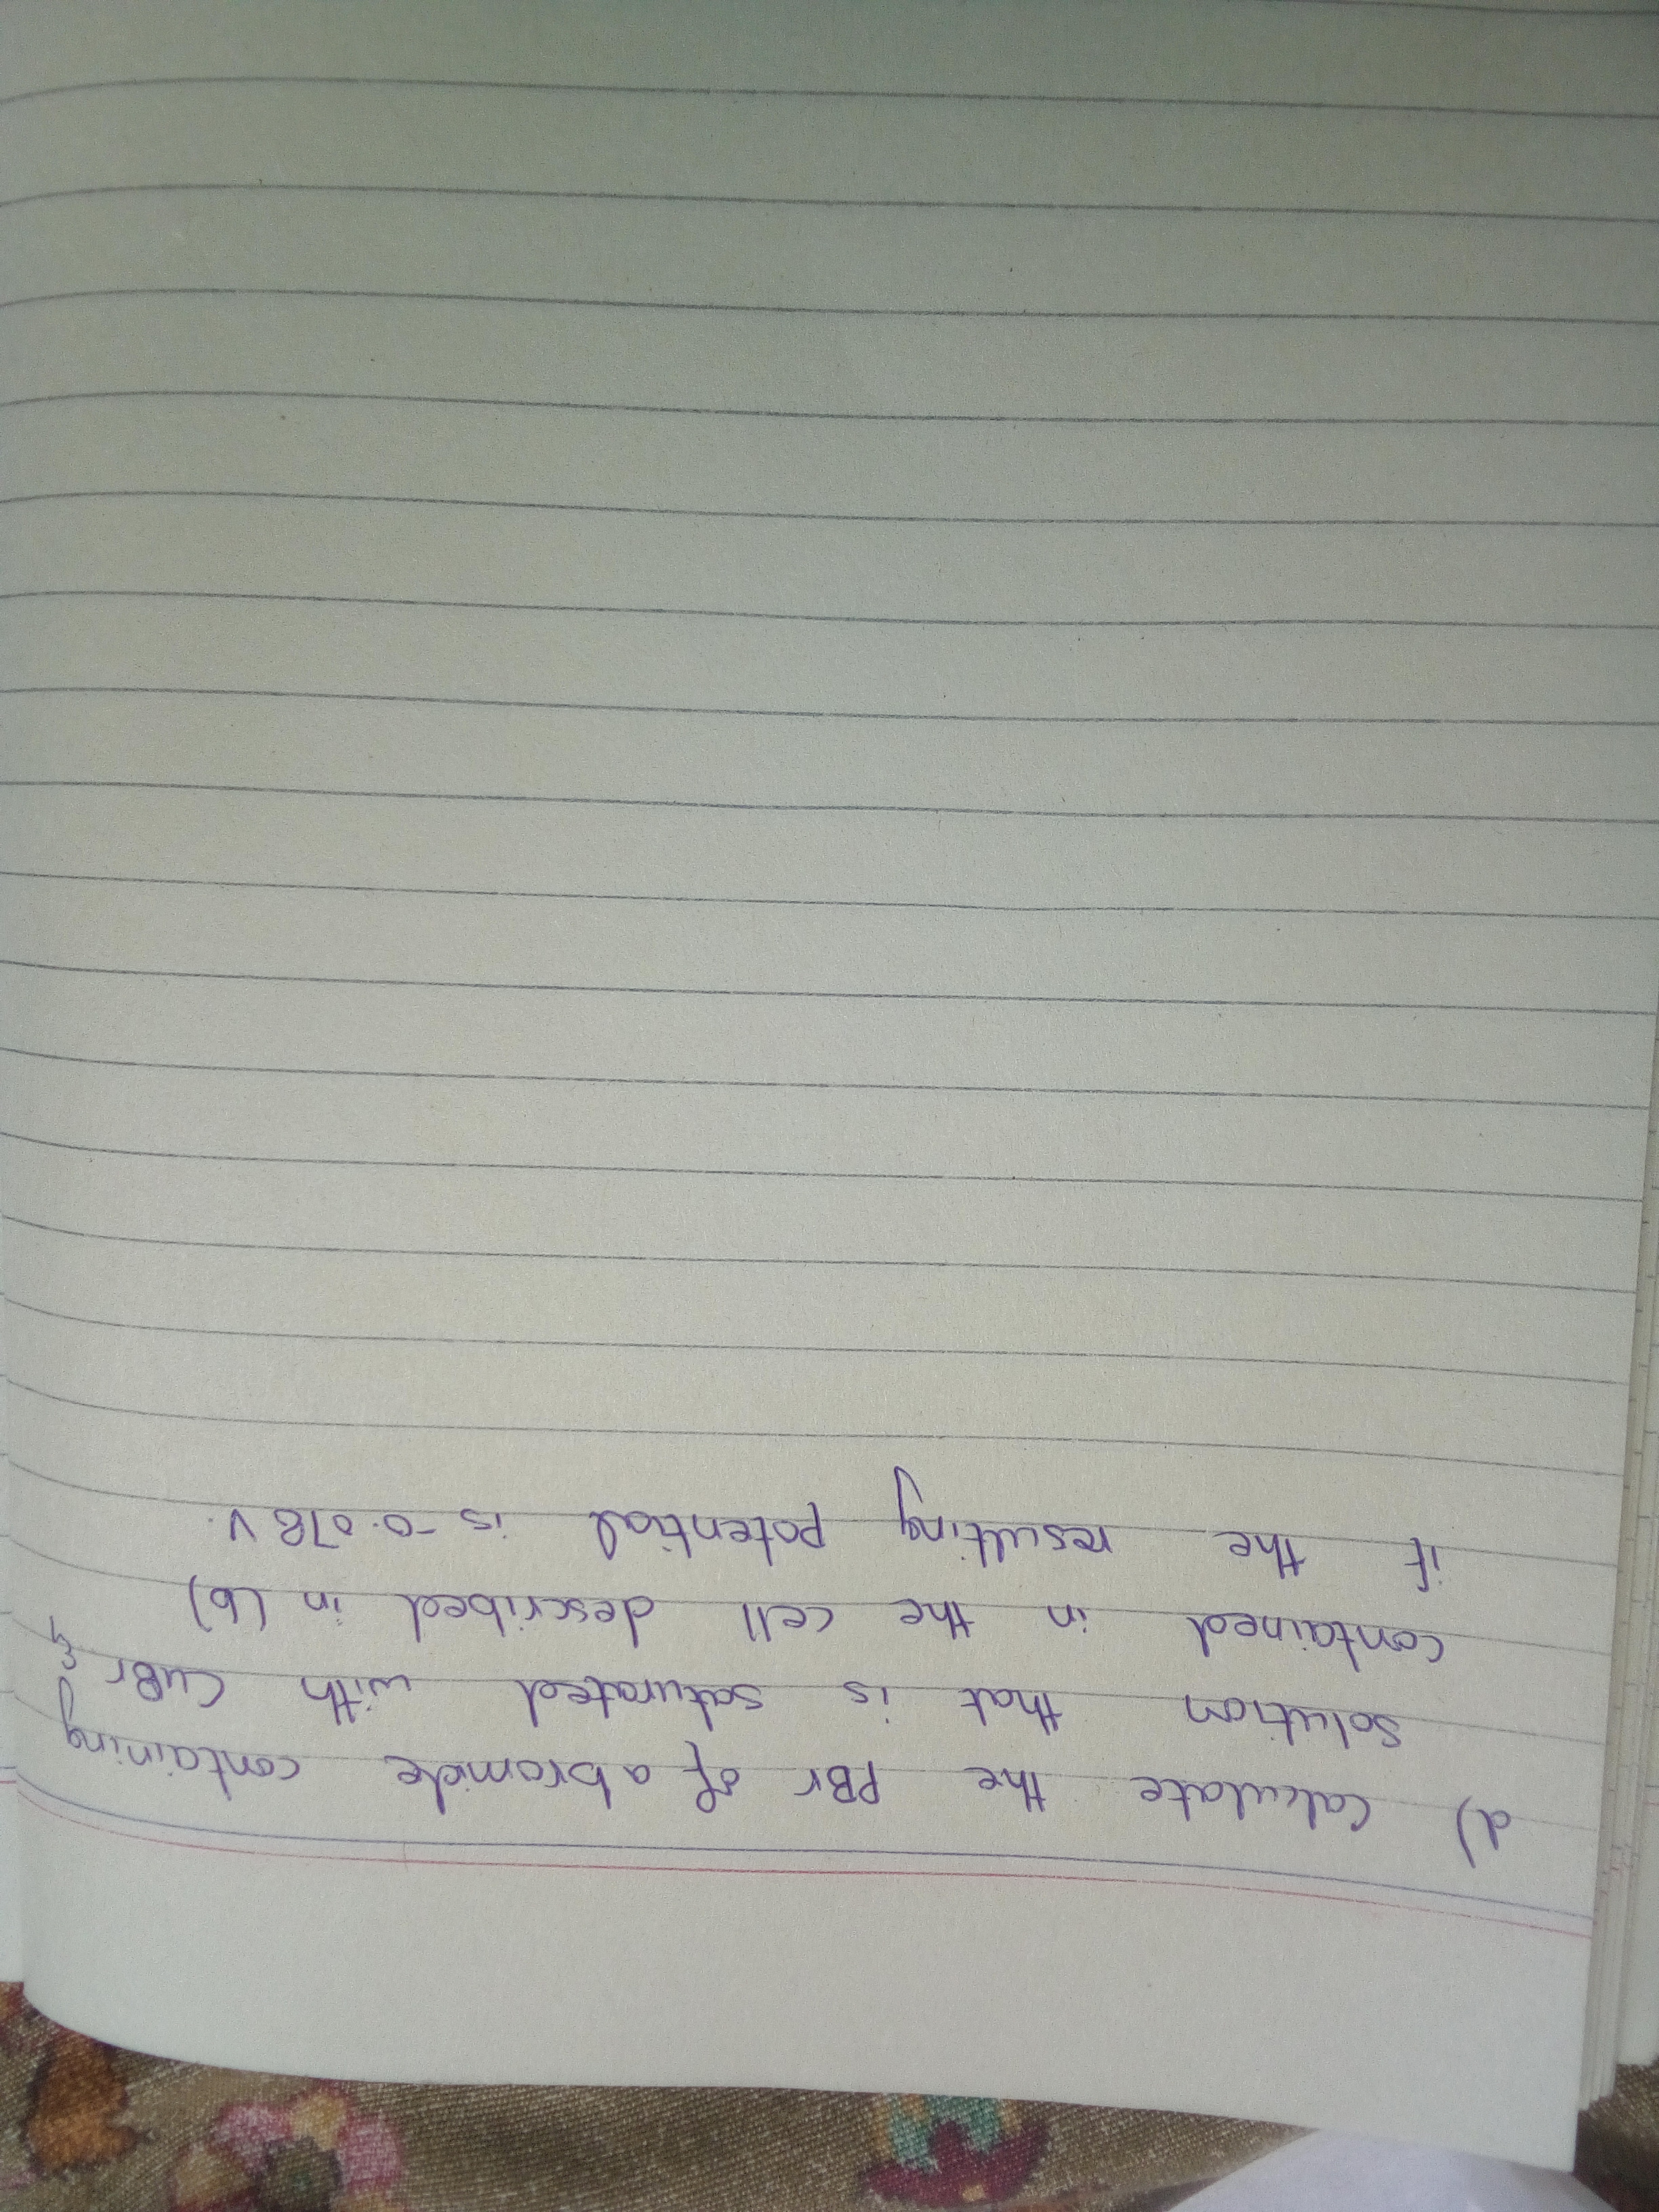 d) Calculate the PBr of a bromide containing
solution that is saturated with CuBr &
contained in the cell described in (b)
if the resulting potential is -0.078 V.